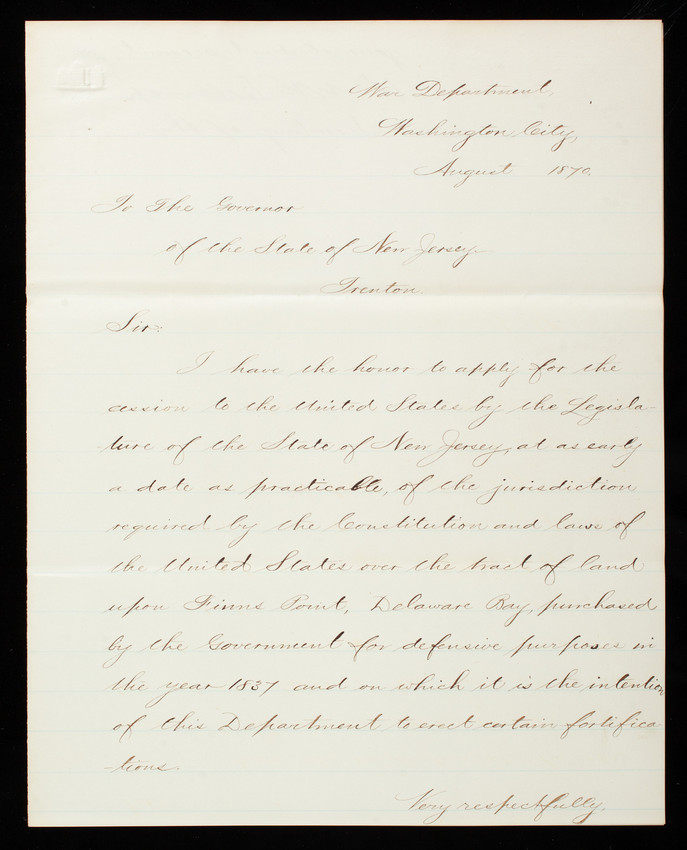 War Department,
Washington City,
August 1870.
To The Governor
of the State of New Jersey
Trenton.
Sir:
I have the honor to apply for the
cession to the United States by the Legisla-
-ture of the State of New Jersey, at as early
a date as practicable, of the jurisdiction
required by the Constitution and laws of
the United States over the tract of land
upon Finns Point, Delaware Bay, purchased
by the Government for defensive purposes in
the year 1837 and on which it is the intention
of this Department to erect certain fortifica-
-tions.
Very respectfully,